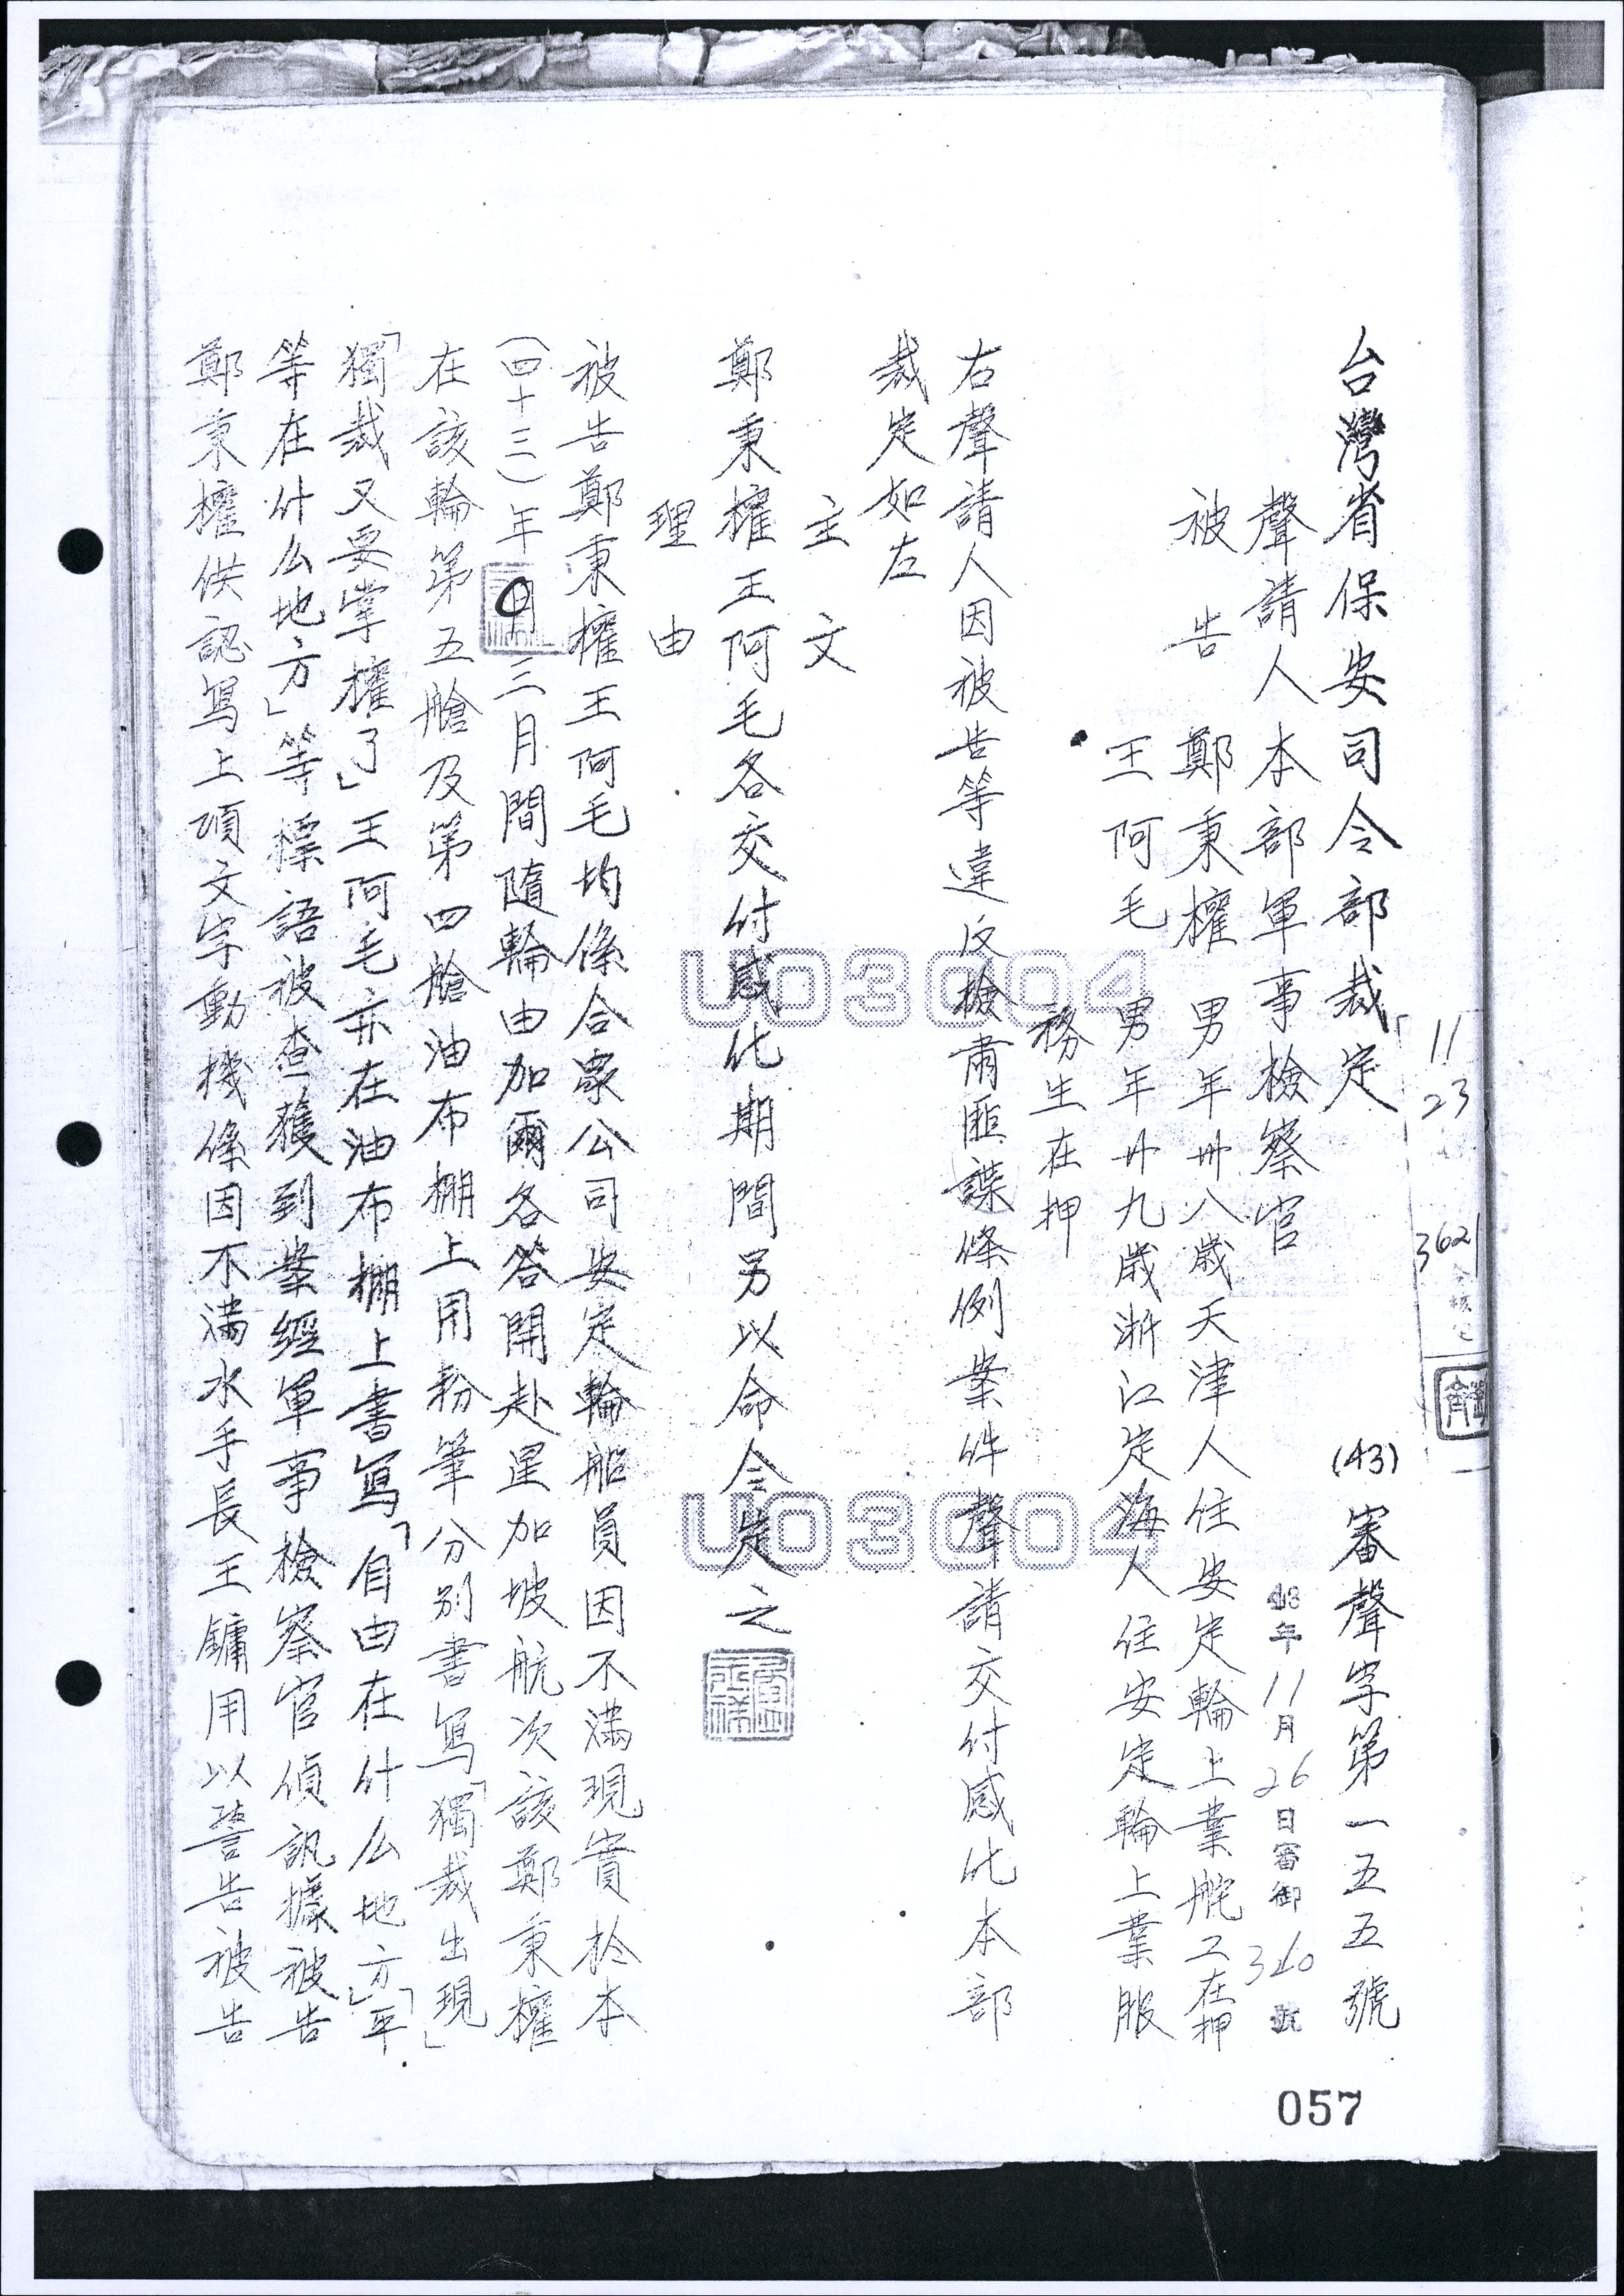 11
23
3621
台灣省保安司令部裁定
(43)審聲字第一五五號
43年11月26日審御310號
聲請人本部軍事檢察官
被告 鄭秉權 男年卅八歲天津人住安定輪上業舵工在押
王阿毛 男年廿九歲浙江定海人住安定輪上業服
務生在押
右聲請人因被告等違反檢肅匪諜條例案件聲請交付感化本部
裁定如左
主文
鄭秉權王阿毛各交付感化期間另以命令定之
理由
被告鄭秉權王阿毛均係合眾公司安定輪船員因不滿現實於本
(四十三)年三月間隨輪由加爾各答開赴星加坡航次該鄭秉權
在該輪第五艙及第四艙油布棚上用粉筆分別書寫「獨裁出現」
「獨裁又要掌權了」王阿毛亦在油布棚上書寫「自由在什么地方」「平
等在什么地方」等標語被查獲到案經軍事檢察官偵訊據被告
鄭秉權供認寫上項文字動機係因不滿水手長王鏞用以警告被告
UO3004
UO3004
057